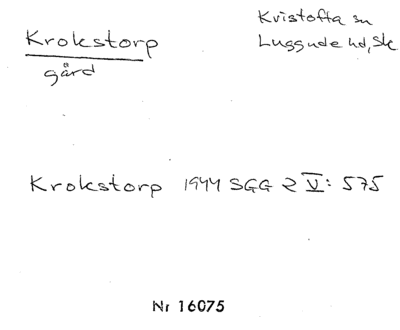 Krokstorp
gård
Kristofta sn
Luggude hd, Sk
Krokstorp 1944 SGG 2 V: 575
Nr 16075